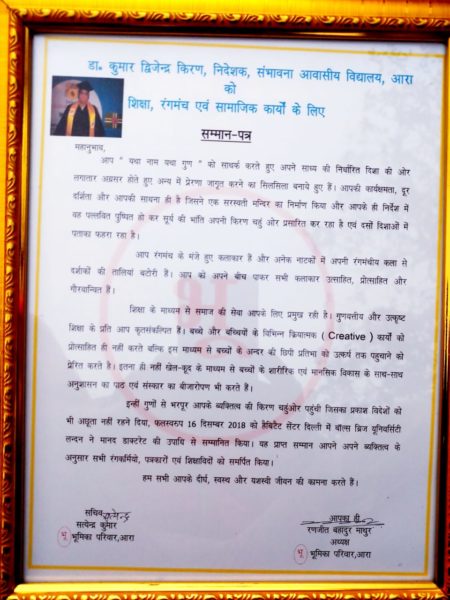 डा॰ कुमार द्विजेन्द्र किरण, निदेशक, संभावना आवासीय विद्यालय, आरा
को
शिक्षा, रंगमंच एवं सामाजिक कार्यों के लिए
सम्मान-पत्र
महानुभाव,
आप " यथा नाम यथा गुण " को सार्थक करते हुए अपने साध्य की निर्धारित दिशा की ओर
लगातार अग्रसर होते हुए अन्य में प्रेरणा जागृत करने का सिलसिला बनाये हुए हैं। आपकी कार्यक्षमता, दूर
दर्शिता और आपकी साधना ही है जिसने एक सरस्वती मन्दिर का निर्माण किया और आपके ही निर्देश में
वह पल्लवित पुष्पित हो कर सूर्य की भांति अपनी किरण चहुं ओर प्रसारित कर रहा है एवं दसों दिशाओं में
पताका फहरा रहा है।
आप रंगमंच के मंजे हुए कलाकार हैं और अनेक नाटकों में अपनी रंगमंचीय कला से
दर्शकों की तालियां बटोरी हैं। आप को अपने बीच पाकर सभी कलाकार उत्साहित, प्रोत्साहित और
गौरवान्वित हैं।
शिक्षा के माध्यम से समाज की सेवा आपके लिए प्रमुख रही है। गुणवत्तीय और उत्कृष्ट
शिक्षा के प्रति आप कृतसंकल्पित हैं। बच्चे और बच्चियों के विभिन्न क्रियात्मक ( Creative ) कार्यों को
प्रोत्साहित ही नहीं करते बल्कि इस माध्यम से बच्चों के अन्दर की छिपी प्रतिभा को उत्कर्ष तक पहुचाने को
प्रेरित करते हैं। इतना ही नहीं खेल-कूद के माध्यम से बच्चों के शारीरिक एवं मानसिक विकास के साथ-साथ
अनुशासन का पाठ एवं संस्कार का बीजारोपण भी करते हैं।
इन्हीं गुणों से भरपूर आपके व्यक्तित्व की किरण चहुंओर पहुंची जिसका प्रकाश विदेशों को
भी अछूता नहीं रहने दिया, फलस्वरुप 16 दिसम्बर 2018 को हैबिटैट सेंटर दिल्ली में वॉल्स ब्रिज यूनिवर्सिटी
लन्दन ने मानद डाक्टरेट की उपाधि से सम्मानित किया। यह प्राप्त सम्मान आपने अपने व्यक्तित्व के
अनुसार सभी रंगकर्मियो, पत्रकारों एवं शिक्षाविदों को समर्पित किया।
हम सभी आपके दीर्घ, स्वस्थ और यशस्वी जीवन की कामना करते हैं।
सचिव
सत्येन्द्र कुमार
भू भूमिका परिवार, आरा
आपका ही
रणजीत बहादुर माथुर
अध्यक्ष
भू भूमिका परिवार, आरा